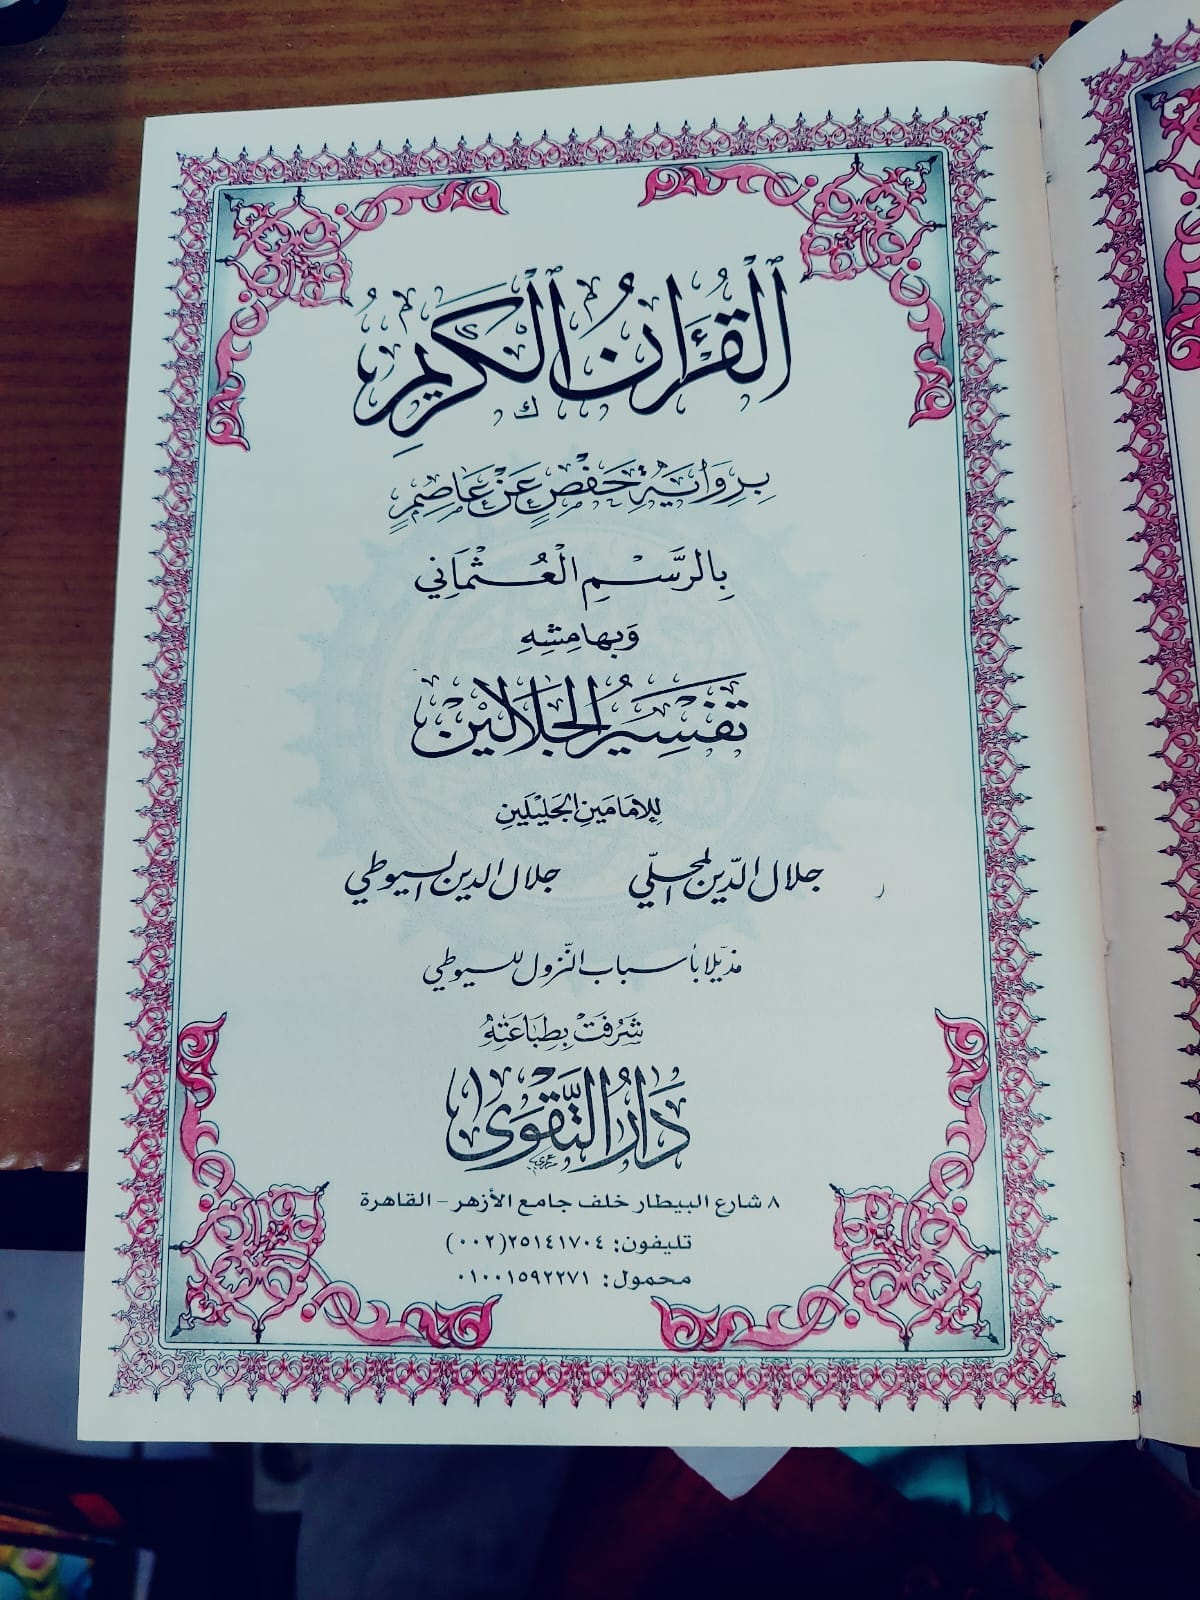 ٱلْقُرْءَانُ ٱلْكَرِيمُ
بِرِوَايَةِ حَفْصٍ عَنْ عَاصِمٍ
بِالرَّسْمِ الْعُثْمَانِي
وَبِهَامِشِهِ
تَفْسِيرُ الْجَلَالَيْن
لِلإِمَامَيْنِ الْجَلِيْلَيْنِ
جلال الدّين المحلّي جلال الدين السيوطي
مذيّلا بأسباب النّزول للسيوطي
شَرُفَتْ بِطِبَاعَتِهِ
دَارُ التَّقْوَى
٨ شارع البيطار خلف جامع الأزهر - القاهرة
تليفون: ٢٥١٤١٧٠٤(٠٠٢)
محمول: ٠١٠٠١٥٩٢٢٧١